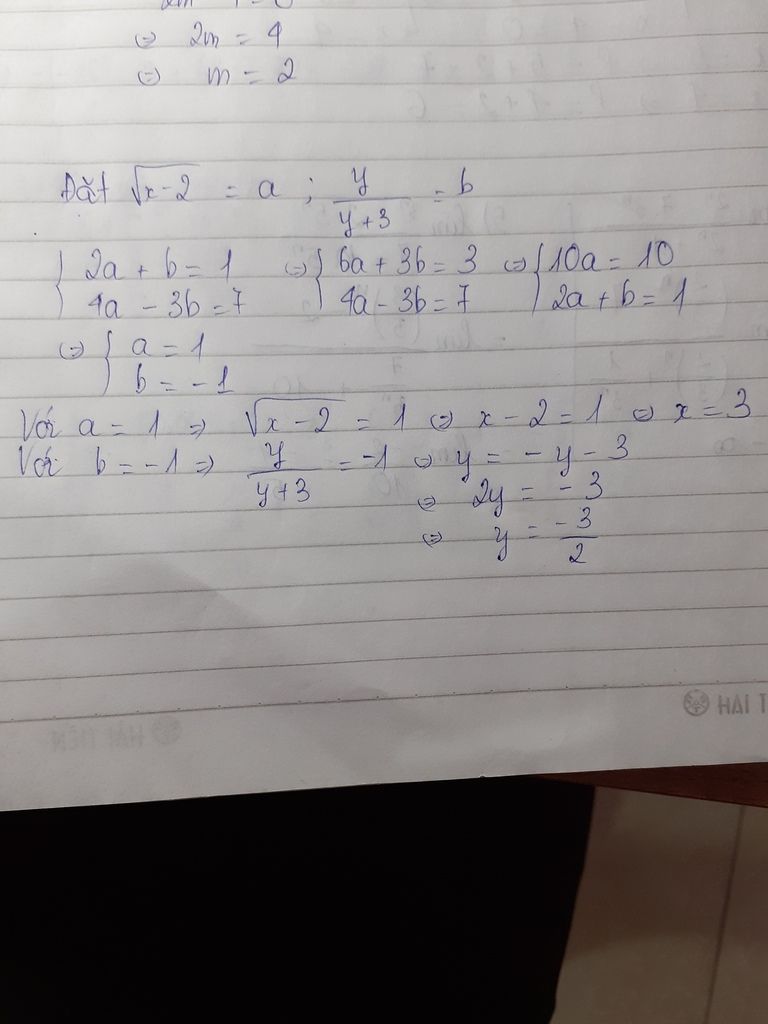 ⇔ 2m = 4
⇔ m = 2
Đặt √x-2 = a ; y/y+3 = b
{ 2a + b = 1 ⇔ { 6a + 3b = 3 ⇔ { 10a = 10
4a - 3b = 7 4a - 3b = 7 2a + b = 1
⇔ { a = 1
b = -1
Với a = 1 ⇒ √x-2 = 1 ⇔ x-2 = 1 ⇔ x = 3
Với b = -1 ⇒ y/y+3 = -1 ⇔ y = -y - 3
⇔ 2y = -3
⇔ y = -3/2
HẢI T